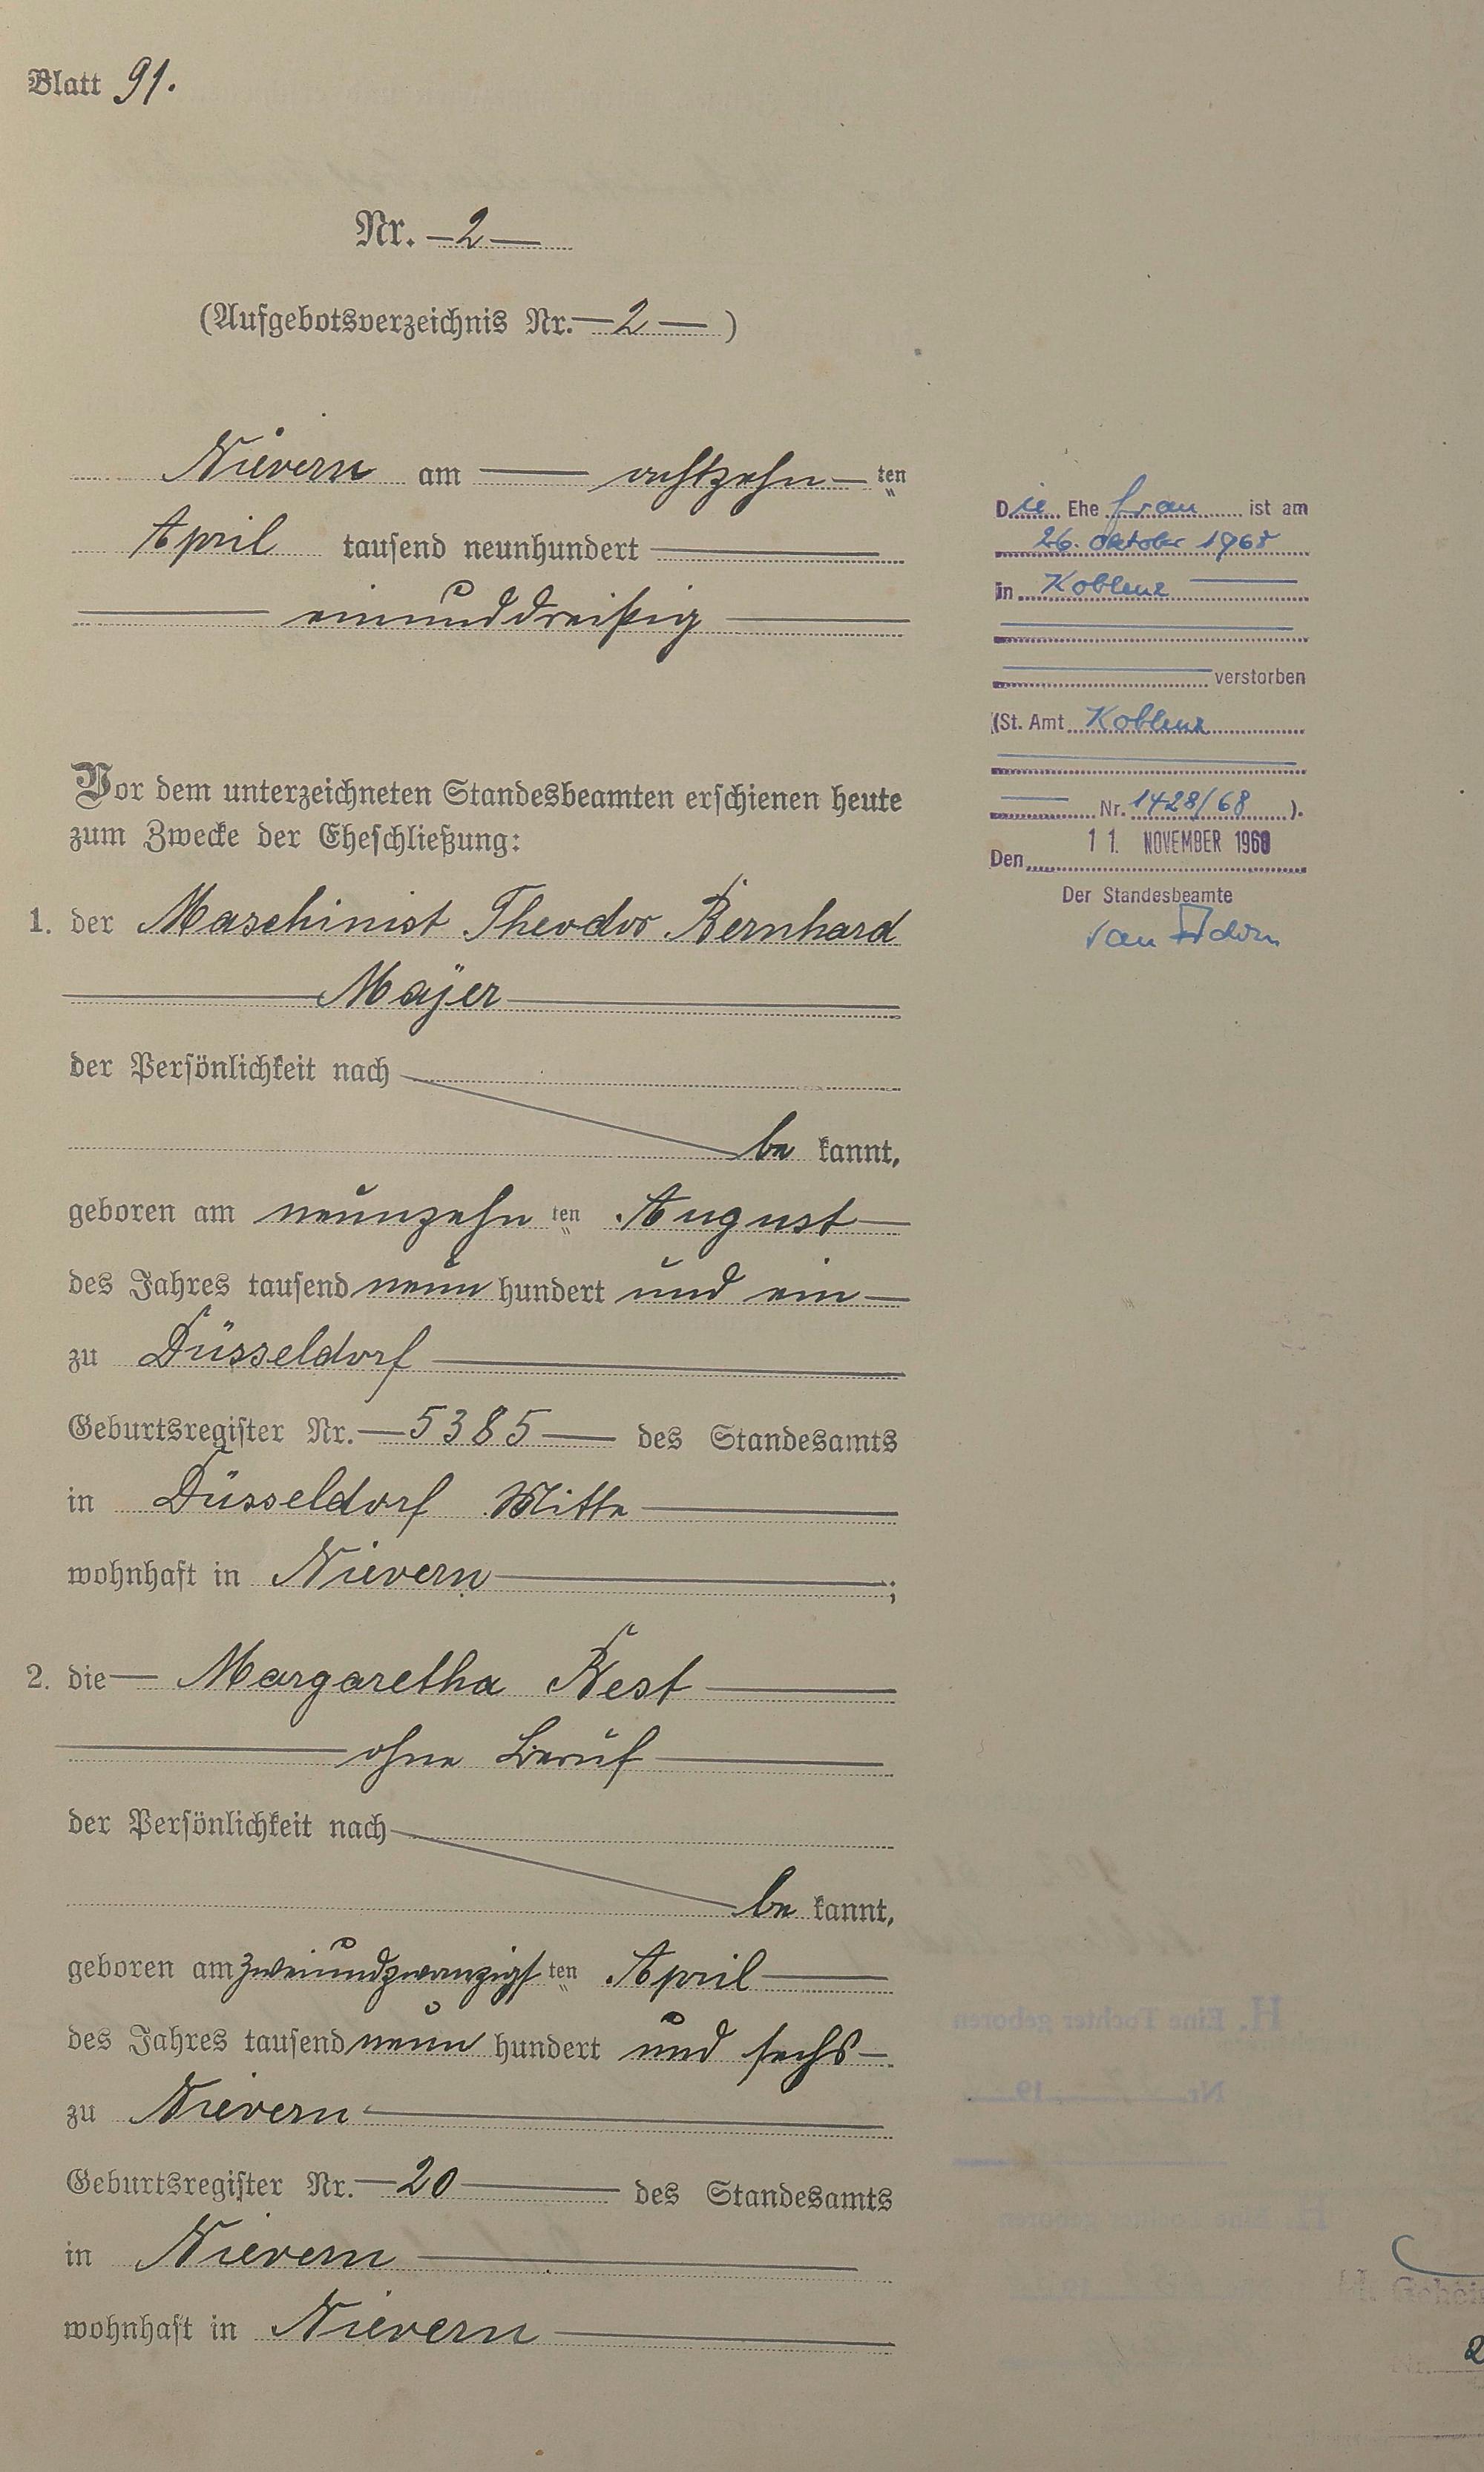 Blatt 91.
Nr. — 2 —
(Aufgebotsverzeichnis Nr. — 2 — )
Nievern am — achtzehn — ten
April tausend neunhundert —
— einunddreißig —
Vor dem unterzeichneten Standesbeamten erschienen heute
zum Zwecke der Eheschließung:
1. der Maschinist Theodor Bernhard
— Mayer —
der Persönlichkeit nach
be kannt,
geboren am neunzehn ten August —
des Jahres tausend neun hundert und ein —
zu Düsseldorf —
Geburtsregister Nr. — 5385 — des Standesamts
in Düsseldorf Mitte —
wohnhaft in Nievern — ;
2. die — Margaretha Best —
— ohne Beruf —
der Persönlichkeit nach
be kannt,
geboren am zweiundzwanzigst ten April —
des Jahres tausend neun hundert und sechs —
zu Nievern —
Geburtsregister Nr. — 20 — des Standesamts
in Nievern —
wohnhaft in Nievern —
Die Ehe frau ist am
26. Oktober 1968
in Koblenz —
verstorben
(St. Amt Koblenz
— Nr. 1428/68 ).
Den 11. NOVEMBER 1968
Der Standesbeamte
H. Eine Tochter geboren
Nr. 19